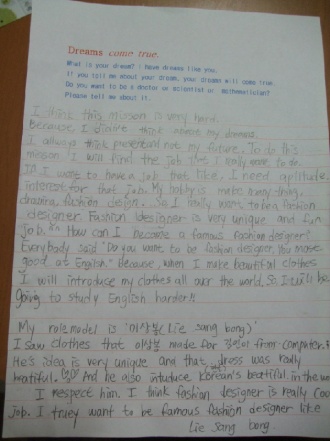 Dreams come true.
What is your dream? I have dreams like you.
If you tell me about your dream, your dream will come true.
Do you want to be a doctor or scientist or mathematician?
Please tell me about it.
I think this misson is very hard.
Because I didn't think about my dreams.
I always think present not my future. To do this
misson I will find the job that I really want to do.
If I want to have a job that like, I need aptitude,
interest for that job. My hobby is make everything,
drawing, fashion design. So I really want to be a fashion
designer. Fashion designer is very unique and fun
job. ^^ How can I become a famous fashion designer?
Everybody said "Do you want to be fashion designer, You must
good at English." Because, when I make beautiful clothes
I will introduse my clothes all over the world. So I will be
going to study English harder!!
My rolemodel is '이상봉(Lie sang bong)'
I saw clothes that 이상봉 made for 김연아 from computer.
He's idea is very unique and that dress was really
beatiful. And he also intoduce Korean's beatiful in the world
I respect him. I think fashion designer is really cool
job. I truey want to be famous fashion designer like
Lie Sang bong.